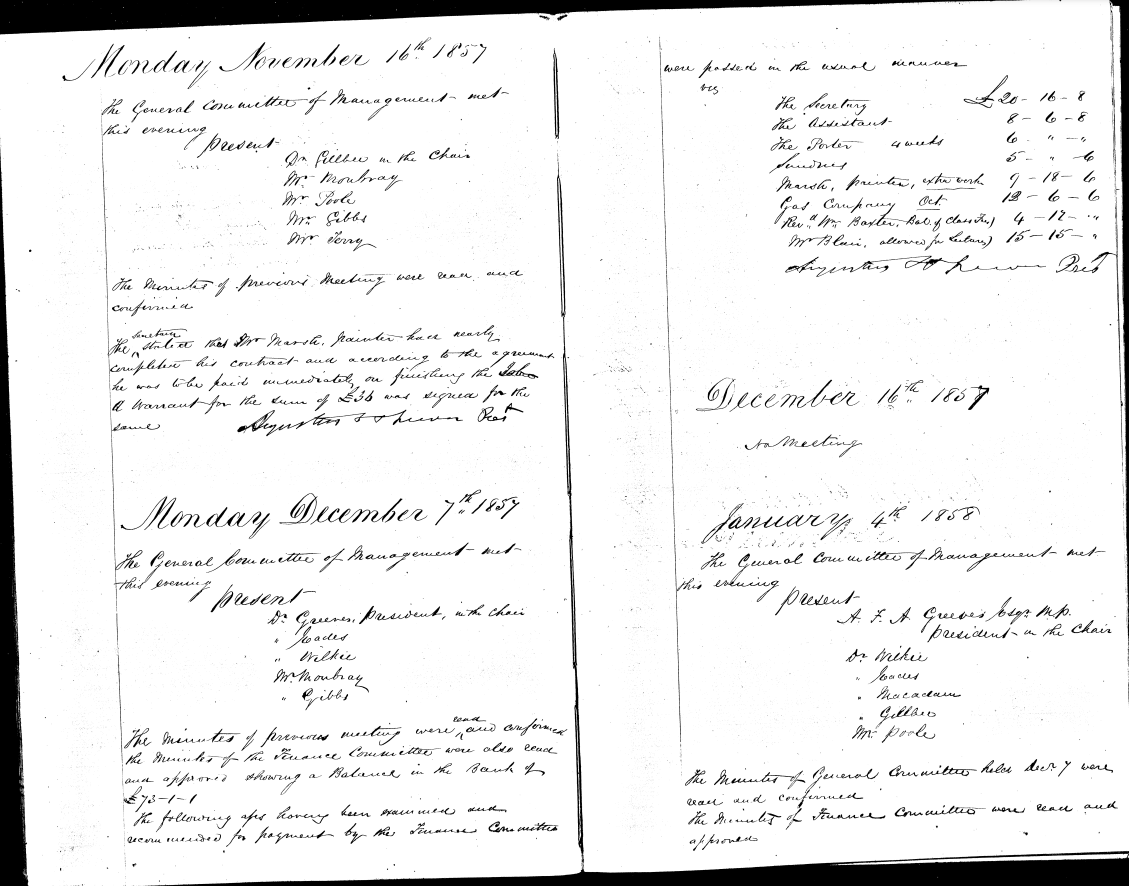 Monday November 16th 1857
The General Committee of Management met
this evening
Present
Dr Gillbee in the Chair
Mr Moubray
Mr Poole
Mr Gibbs
Mr Terry
The Minutes of previous Meeting were read and
confirmed
The secretary stated that Mr Marsh, painter had nearly
completed his contract and according to the agreement
he was to be paid immediately on finishing the Job
A Warrant for the sum of £36 was signed for the
same
Augustus F A Greeves Prest
Monday December 7th 1857
The General Committee of Management met
this evening
Present
Dr Greeves, President, in the Chair
" Eades
" Wilkie
Mr Moubray
" Gibbs
The Minutes of previous meeting were read and confirmed
the Minutes of the Finance Committee were also read
and approved showing a Balance in the Bank of
£73-1-1
The following a/cs having been examined and
recommended for payment by the Finance Committee
were passed in the usual manner
viz
The Secretary £20-16-8
The Assistant 8-6-8
The Porter 4 weeks 6 " - "
Sundries 5 - " - 6
Marsh, painter, extra work 9-18-6
Gas Company Oct. 12-6-6
Revd Wm Baxter, Bal of Class Fees) 4-12-"
Mr Blair, allowed for Lectures) 15-15-"
Augustus F A Greeves Prest
December 16th 1857
No Meeting
January 4th 1858
The General Committee of Management met
this evening
Present
A. F. A. Greeves Esqr M.P.
President in the Chair
Dr Wilkie
" Eades
" Macadam
" Gillbee
Mr Poole
The Minutes of General Committee held Decr 7 were
read and confirmed
The Minutes of Finance Committee were read and
approved